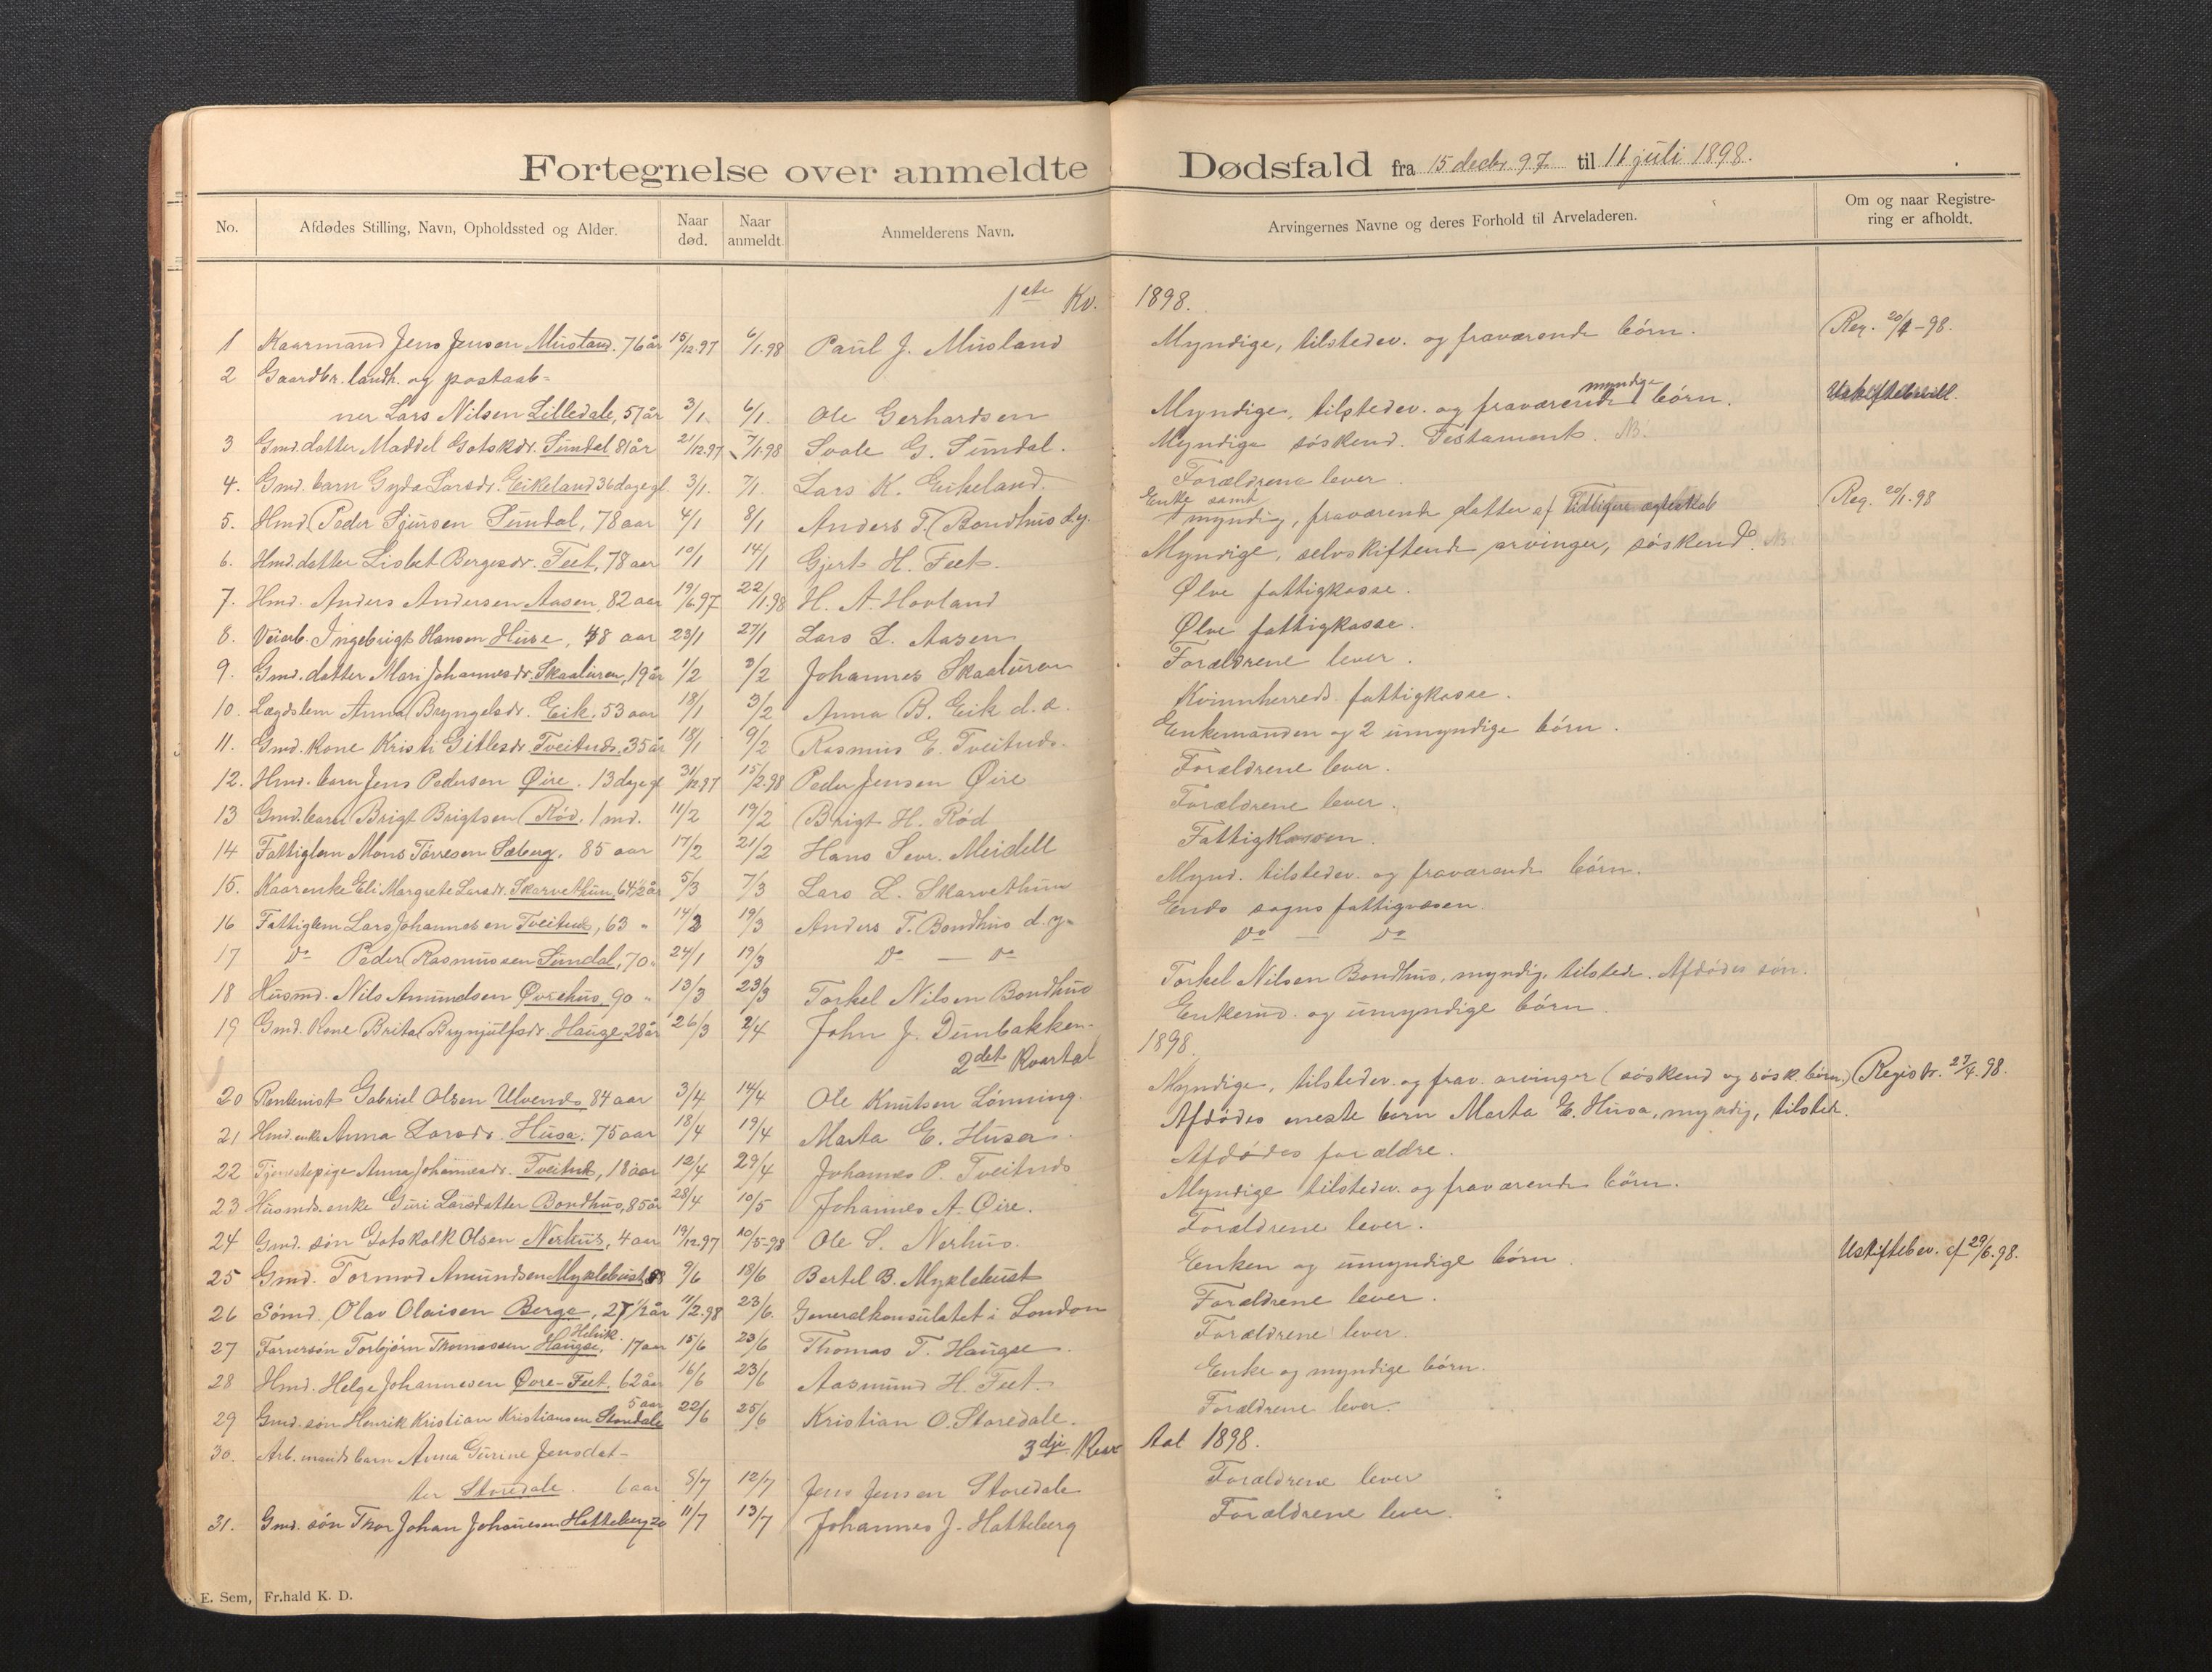 Fortegnelse over anmeldte Dødsfald fra 15 decbr 97 til 11 juli 1898.
No. Afdødes Stilling, Navn, Opholdssted og Alder. Naar død. Naar anmeldt. Anmelderens Navn. Arvingernes Navne og deres Forhold til Arveladeren. Om og naar Registrering er afholdt.
1ste Kv. 1898.
1 Kaarmand Jens Jensen Musland. 76 år 15/12.97 6/1.98 Paul J. Musland Myndige, tilstedev. og fraværende börn. Reg. 20/1-98.
2 Gaardbr. landh. og postaab-
ner Lars Nilsen Lilledale, 57 år 3/1. 6/1. Ole Gerhardsen Myndige, tilstedev. og fraværende myndige börn.
3 Gmd. datter Maddel Gotskdr. Sundal 81 år 21/12.97 7/1.98 Svale G. Sundal. Myndige söskend. Testament. NB.
4. Gmd. barn Gyda Larsdr. Eikeland 36 dage gl 3/1. 7/1. Lars K. Eikeland. Forældrene lever.
5. Hmd. Peder Sjursen Sundal, 78 aar 4/1 8/1 Anders T. Bondhus d.y. Enke samt myndig, fraværende datter af tidligere ægteskab Reg. 20/1.98
6. Hmd. datter Lisbet Bergesdr. Feet, 78 aar 10/1 14/1 Gjert H. Feet. Myndige, selvskiftende arvinger, söskend. NB.
7. Hmd. Anders Andersen Aasen, 82 aar 19/6.97 22/1.98 H. A. Hovland Ølve fattigkasse.
8. Veiarb. Ingebrigt Hansen Huse, 48 aar 23/1 27/1 Lars L. Aasen Ølve fattigkasse.
9. Gmd. datter Mari Johannesdr. Skaaluren, 19 år 1/2 3/2 Johannes Skaaluren Forældrene lever.
10. Lægdslem Anna Bryngelsdr. Eik. 53 aar 18/1 3/2 Anna B. Eik d.æ. Kvinnherreds fattigkasse.
11. Gmd. kone Kristi Gitlesdr Tveitnds. 35 år 18/1 9/2 Rasmus E. Tveitnds. Enkemanden og 2 umyndige börn.
12. Hmd. barn Jens Pedersen Øire. 13 dage gl 31/12.97 15/2.98 Peder Jensen Øire Forældrene lever.
13 Gmd. barn Brigt Brigtsen Röd. 1 md. 11/2 19/2 Brigt H. Röd Forældrene lever.
14 Fattiglem Mons Törresen Sæberg. 85 aar 17/2 21/2 Hans Sevr. Meidell Fattigkassen.
15. Kaarenke Eli Margrete Larsdr. Skarvethun, 64½ år 5/3 7/3 Lars L. Skarvethun Mynd. tilstedev. og fraværende börn.
16 Fattiglem Lars Johannesen Tveitnes, 63 " 14/3 19/3 Anders T. Bondhus d.y. Ends sogns fattigvæsen.
17 Do Peder Rasmussen Sundal, 70 " 24/1 19/3 Do — Do Do — Do
18 Husmd. Nils Amundsen Øvrehus 90 " 13/3 23/3 Torkel Nilsen Bondhus Torkel Nilsen Bondhus, myndig, tilstede. Afdödes sön.
19 Gmd. kone Brita Brynjulfsdr. Hauge 28 år 26/3 2/4 John J. Dunbakken. Enkemd. og umyndige börn.
2det Kvartal 1898.
20 Rentenist Gabriel Olsen Ulvenes 84 aar 3/4 14/4 Ole Knutsen Lönning. Myndige, tilstedev. og frav. arvinger (söskend og sösk. börn.) Registr. 27/4.98.
21 Hmd. enke Anna Larsdr. Husa. 75 aar 18/4 19/4 Marta E. Husa. Afdödes eneste barn Marta E. Husa, myndig, tilstede.
22 Tjenestepige Anna Johannesdr. Tveitnd, 18 aar 12/4 29/4 Johannes P. Tveitnds Afdödes forældre.
23 Husmds. enke Guri Larsdatter Bondhus, 85 år 28/4 10/5 Johannes A. Øire. Myndige tilstedev. og fraværende börn.
24 Gmd. sön Gotskalk Olsen Nerhus, 4 aar 19/12.97 10/5-98 Ole S. Nerhus. Forældrene lever.
25 Gmd. Tormod Amundsen Myklebust 58 9/6 18/6 Bertel B. Myklebust Enken og umyndige börn Uskiftebev. af 29/6.98.
26 Sömd. Olav Olaisen Berge, 27½ år 11/2.98 23/6. Generalkonsulatet i London Forældrene lever.
27 Farversön Torbjörn Thomassen Haugse, Helvik. 17 aar 15/6 23/6 Thomas T. Haugse. Forældrene lever.
28 Hmd. Helge Johannesen Øvre-Feet. 62 aar 16/6 23/6 Aasmund H. Feet. Enke og myndige börn.
29 Gmd. sön Henrik Kristian Kristiansen Storedale 5 aar 22/6 25/6 Kristian O. Storedale. Forældrene lever.
3dje Kvartal 1898.
30. Arb. mands barn Anna Gurine Jensdat-
ter Storedale. 6 aar 8/7 12/7 Jens Jensen Storedale Forældrene lever
31. Gmd. sön Thor Johan Johansen Hatteberg 20 11/7 13/7 Johannes J. Hatteberg Forældrene lever.
E. Sem, Fr.hald K. D.